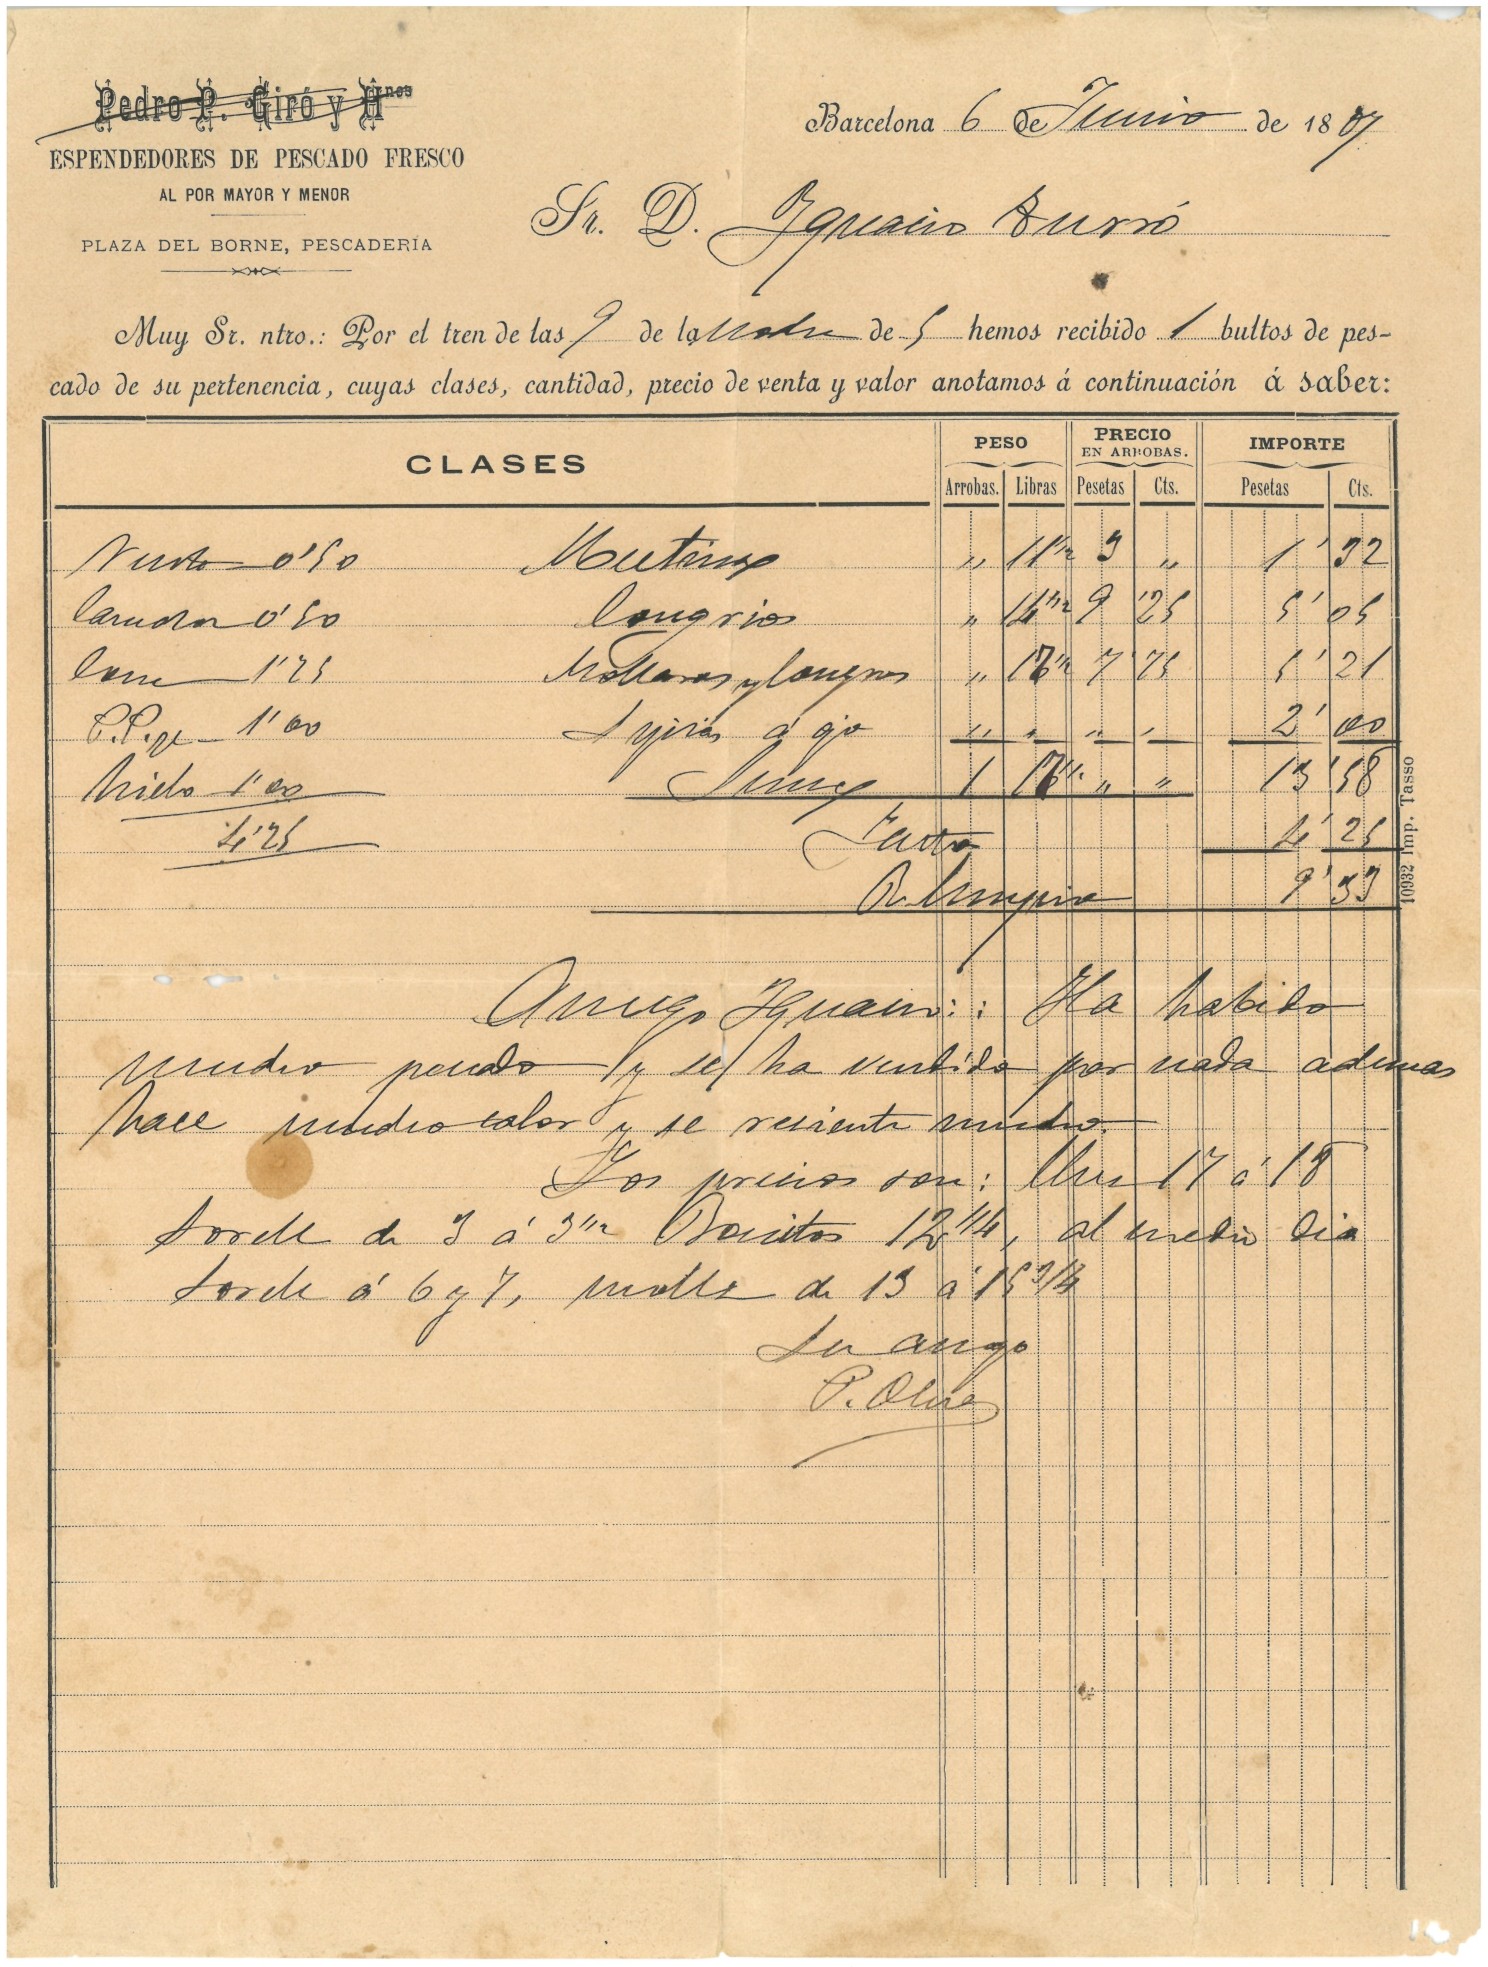 Pedro P. Giró y Hnos
ESPENDEDORES DE PESCADO FRESCO
AL POR MAYOR Y MENOR
PLAZA DEL BORNE, PESCADERÍA
Barcelona 6 de Junio de 1807
Sr. D. Ignacio Surró
Muy Sr. ntro.: Por el tren de las 9 de la de 5 hemos recibido 1 bultos de pes-
cado de su pertenencia, cuyas clases, cantidad, precio de venta y valor anotamos á continuación á saber:
CLASES PESO PRECIO EN ARROBAS. IMPORTE
Arrobas. Libras Pesetas Cts. Pesetas Cts.
0'50 „ 11 1/2 3 „ 1' 32
0'50 Congrios „ 14 1/2 9 '25 5' 05
1'25 Molleras y Congrios „ 17 1/2 7 '75 5' 21
1'00 á ojo „ „ „ „ 2' 00
hielo 1'00 Suma 1 „ „ 13' 58
4'25 Gastos 4' 25
R. limpio 9' 33
Amigo Ignacio: Ha habido
mucho pescado y se ha vendido por nada ademas
hace mucho calor y se resiente mucho.
Los precios son: Llus 17 á 18
Sorell de 3 á 3 1/2 Bonitos 12 1/4, al medio dia
Sorell á 6 y 7, molls de 13 á 15 3/4
Su amigo
P. Oliva
10932 Imp. Tasso